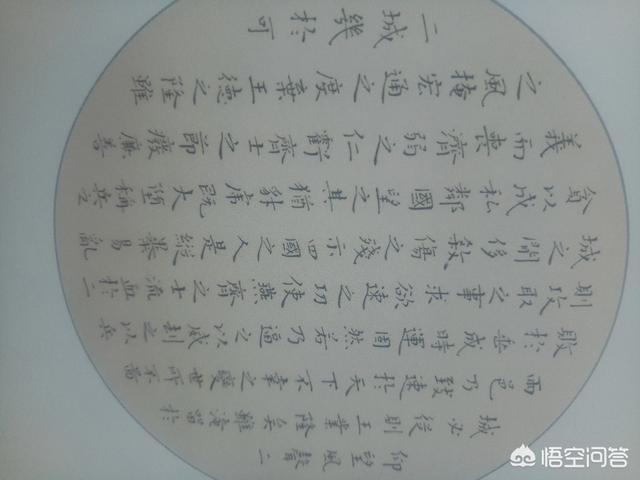 仰望風聲二
城必從則王業隆矣雖淹留於
兩邑乃致速於天下不幸之變世所不圖
敗於垂成時運固然若乃逼之以威劫之以兵
則攻取之事求欲速之功使燕齊之士流血於二
城之間侈殺傷之殘示四國之人是縱暴易亂
貪以成私鄰國望之其猶豺虎既大墮稱兵之
義而喪濟弱之仁虧齊士之節廢廉善
之風掩宏通之度棄王德之隆雖
二城幾於可
悟空问答